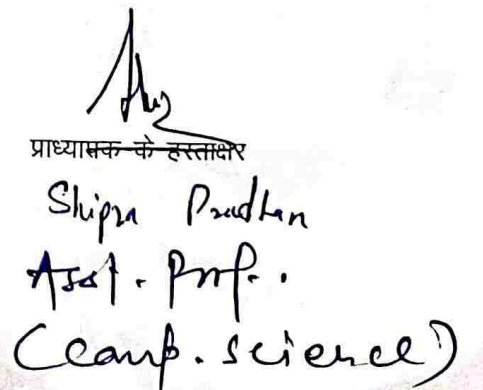 प्राध्यापक के हस्ताक्षर
Shipra Pradhan
Asst. Prof..
(Comp. science)